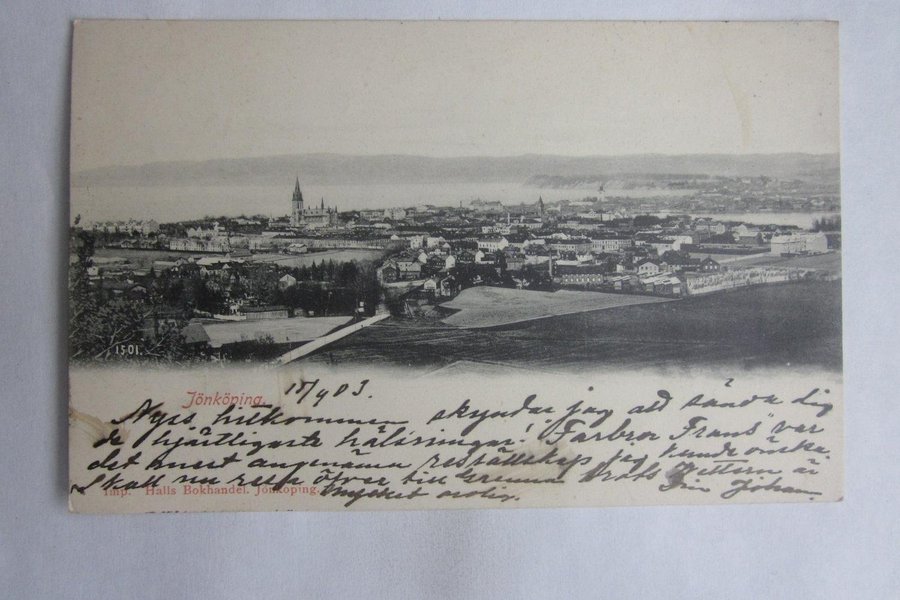 1501.
Jönköping. 15/9 03.
Nyss hitkommen skyndar jag att sända dig
de hjärtligaste hälsningar! "Farbror Frans" var
det mest angenäma resesällskap jag kunde önska.
Skall nu resa öfver till Grenna trots Vettern är
mycket orolig. Din Johan.
Imp. Halls Bokhandel. Jönköping.